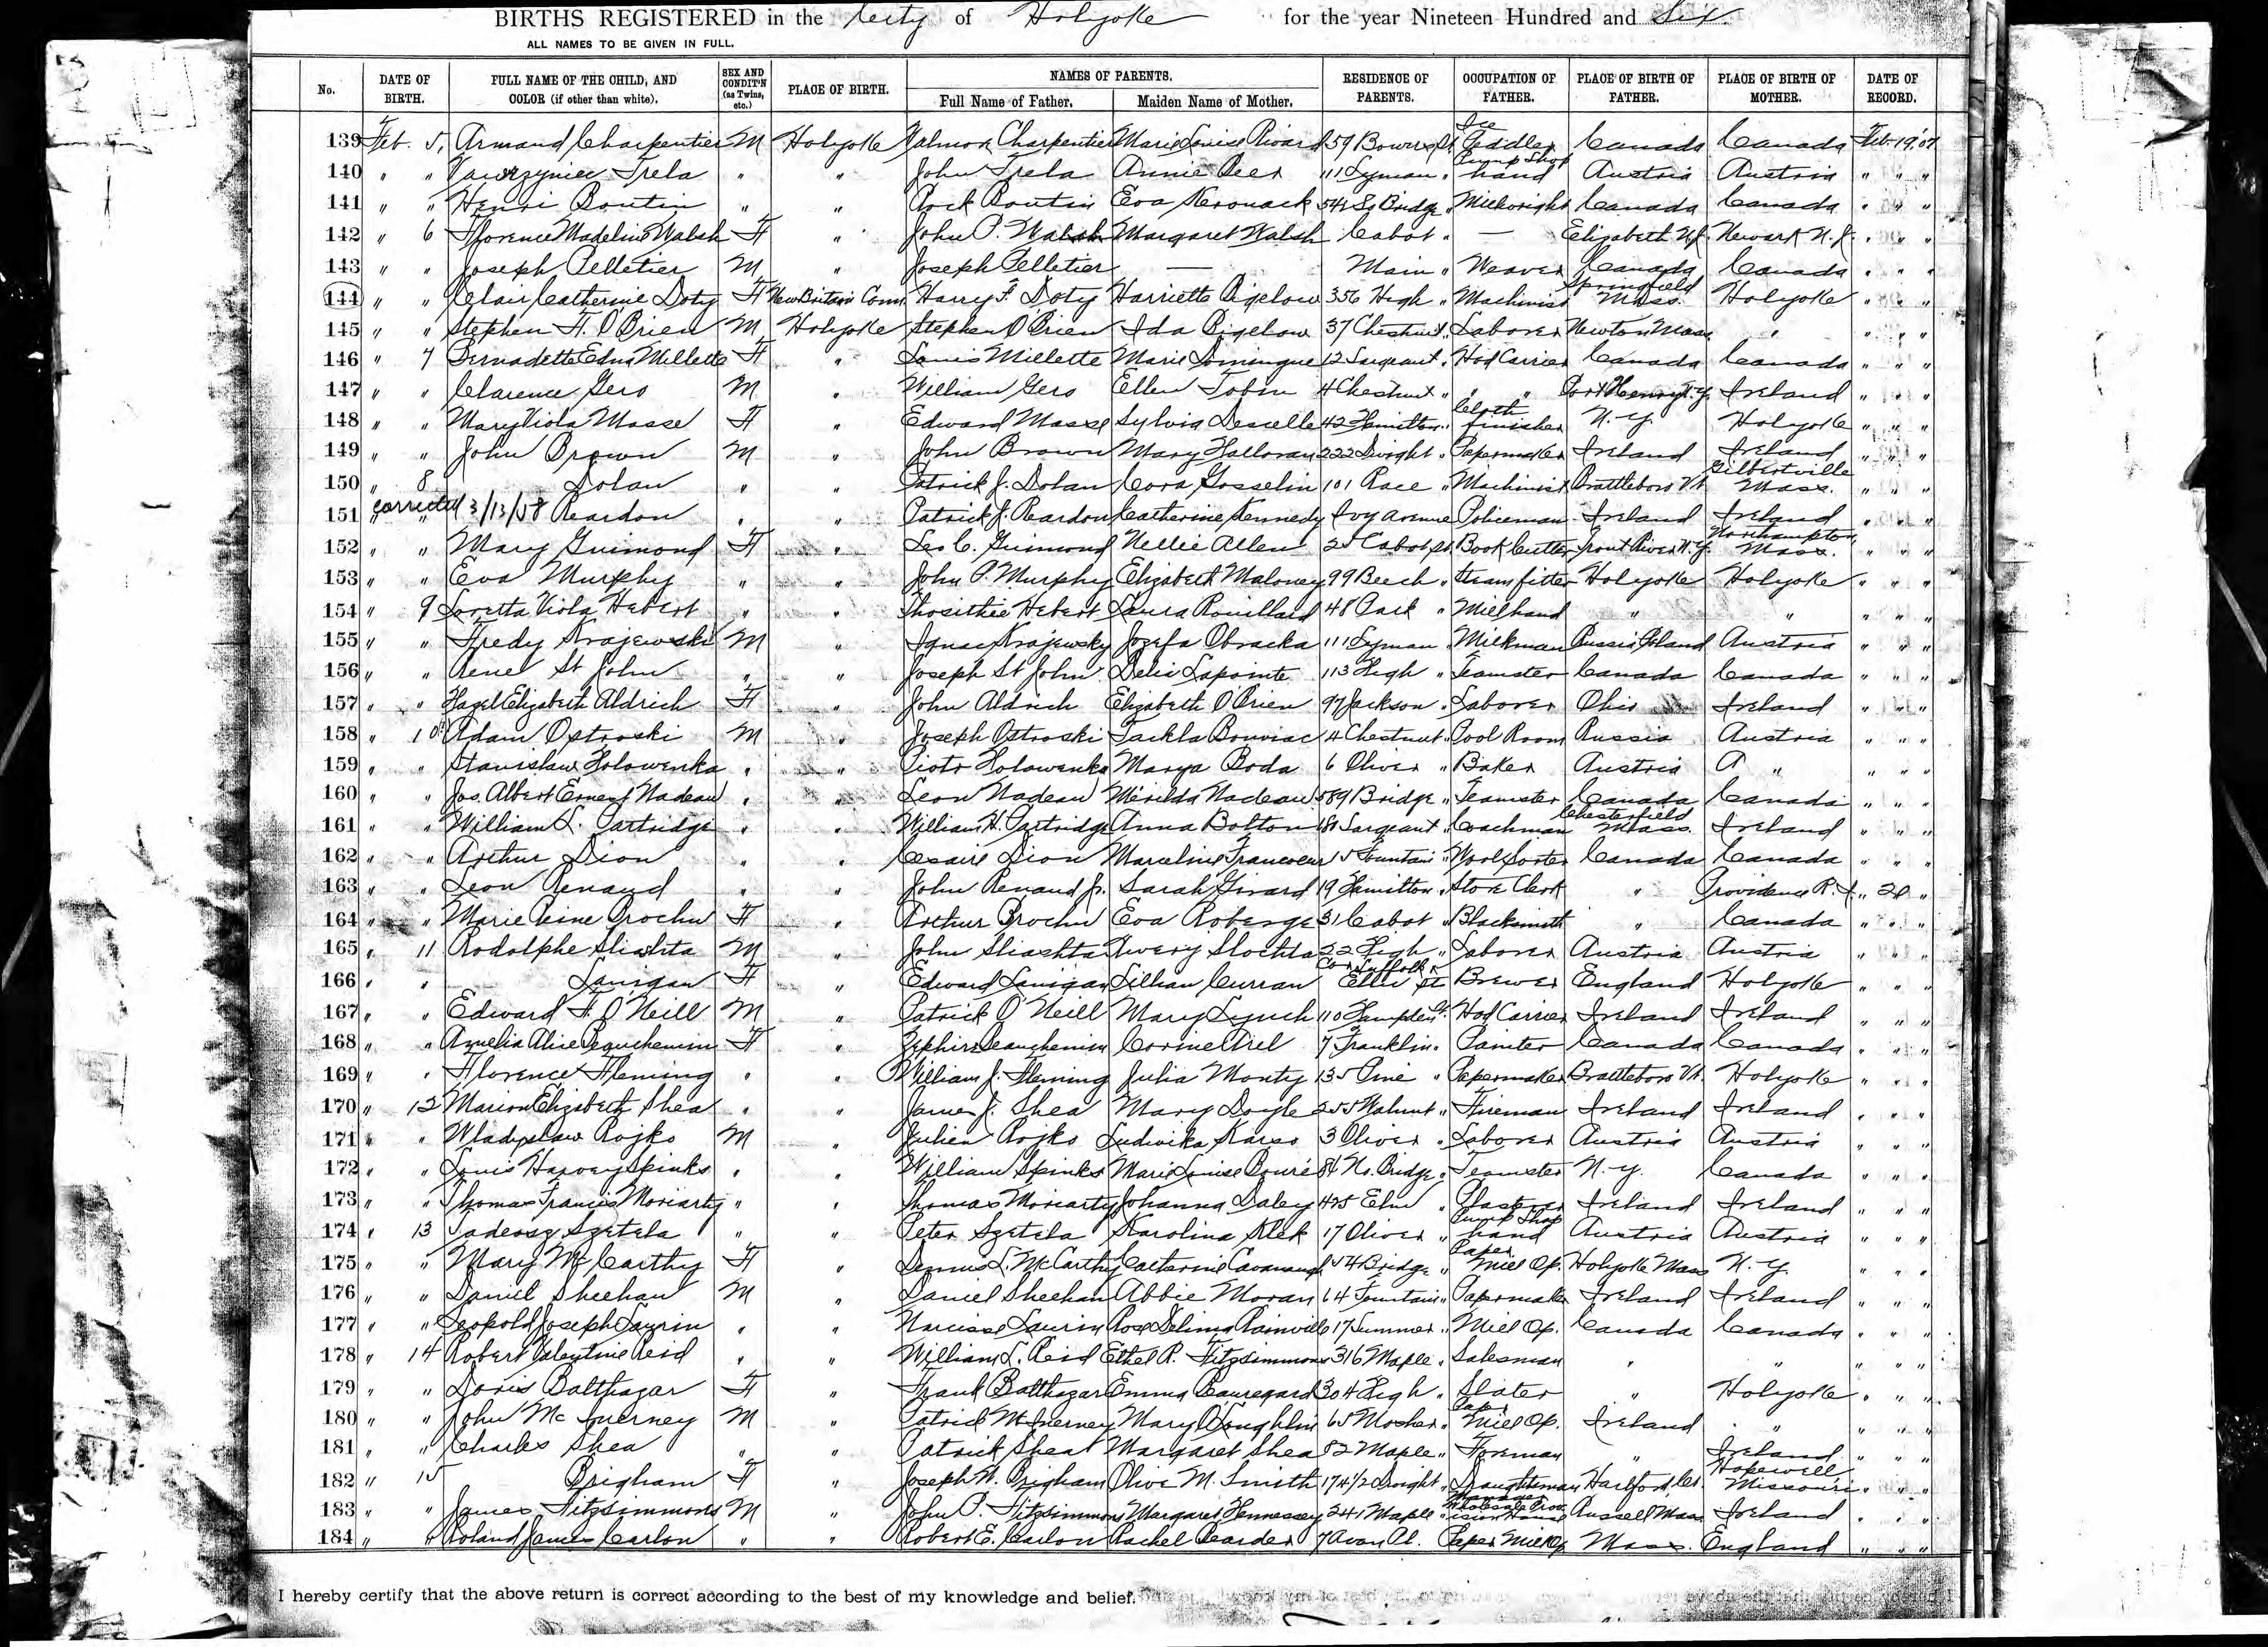 BIRTHS REGISTERED in the City of Holyoke for the year Nineteen Hundred and Six.
ALL NAMES TO BE GIVEN IN FULL.
No. DATE OF BIRTH. FULL NAME OF THE CHILD, AND COLOR (if other than white). SEX AND CONDIT'N (as Twins, etc.) PLACE OF BIRTH. NAMES OF PARENTS. Full Name of Father. Maiden Name of Mother. RESIDENCE OF PARENTS. OCCUPATION OF FATHER. PLACE OF BIRTH OF FATHER. PLACE OF BIRTH OF MOTHER. DATE OF RECORD.
139 Feb. 5, Armand Charpentier M Holyoke Charpentier Marie Louise Rivard 59 Bowers St. Ice Peddler Canada Canada Feb. 19, '07
140 " " Trela " " John Trela Annie 111 Lyman " Pump Shop hand Austria Austria " " "
141 " " Henri Boutin " " Rock Boutin Eva Keronack 542 So Bridge " Millwright Canada Canada " " "
142 " 6 Florence Madeline Walsh F " John P. Walsh Margaret Walsh Cabot " — Elizabeth N.J. Newark N.J. " " "
143 " " Joseph Pelletier M " Joseph Pelletier — Main " Weaver Canada Canada " " "
144 " " Clair Catherine Doty F New Britain Conn. Harry F. Doty Harriette Bigelow 356 High " Machinist Springfield Mass. Holyoke " " "
145 " " Stephen F. O'Brien M Holyoke Stephen O'Brien Ida Bigelow 37 Chestnut " Laborer Newton Mass. " " " "
146 " 7 Bernadette Edna Millette F " Louis Millette Marie Domingue 12 Sargeant " Hod Carrier Canada Canada " " "
147 " " Clarence Gero M " William Gero Ellen Tobin 4 Chestnut " " " Port Henry N.Y. Ireland " " "
148 " " Mary Viola Masse F " Edward Masse Sylvia 42 Hamilton " Cloth finisher N.Y. Holyoke " " "
149 " " John Brown M " John Brown Mary Halloran 222 Dwight " Papermaker Ireland Ireland " " "
150 " 8 Dolan " " Patrick J. Dolan Cora Gosselin 101 Race " Machinist Brattleboro Vt. Gilbertville Mass. " " "
151 " " corrected 3/13/58 Reardon " " Patrick J. Reardon Catherine Kennedy Ivy Avenue Policeman Ireland Ireland " " "
152 " " Mary Guimond F " Leo C. Guimond Nellie Allen 25 Cabot St. Book Cutter Trout River N.Y. Northampton, Mass. " " "
153 " " Eva Murphy " " John P. Murphy Elizabeth Maloney 99 Beech " Steamfitter Holyoke Holyoke " " "
154 " 9 Loretta Viola Hebert " " Hebert Laura Rouillard 48 Park " Millhand " " " " "
155 " " Fredy Krajewski M " Ignac Krajewsky Jozefa Obracka 111 Lyman " Milkman Russia Poland Austria " " "
156 " " Rene St John " " Joseph St John Delia Lapointe 113 High " Teamster Canada Canada " " "
157 " " Hazel Elizabeth Aldrich F " John Aldrich Elizabeth O'Brien 97 Jackson " Laborer Ohio Ireland " " "
158 " 10 Adam Ostroski M " Joseph Ostroski Tackla 4 Chestnut " Pool Room Russia Austria " " "
159 " " Stanislaw Holowenka " " Piotr Holowenka Marya Boda 6 Oliver " Baker Austria A " " " "
160 " " Jos. Albert Ernest Nadeau " " Leon Nadeau Merilda Nadeau 589 Bridge " Teamster Canada Canada " " "
161 " " William L. Partridge " " William H. Partridge Anna Bolton 181 Sargeant " Coachman Chesterfield Mass. Ireland " " "
162 " " Arthur Dion " " Cesaire Dion Marceline Francoeur 15 Fountain " Wool Sorter Canada Canada " " "
163 " " Leon Renaud " " John Renaud Jr. Sarah Girard 19 Hamilton " Store Clerk " Providence R.I. " 20 "
164 " " Marie Reine Brochu F " Arthur Brochu Eva Roberge 31 Cabot " Blacksmith " Canada " " "
165 " 11 Rodolphe M " John Sliashta 22 High " Laborer Austria Austria " " "
166 " " Lanigan F " Edward Lanigan Lillian Curran Cor Suffolk & Elm St Brewer England Holyoke " " "
167 " " Edward F. O'Neill M " Patrick O'Neill Mary Lynch 110 Hampden St. Hod Carrier Ireland Ireland " " "
168 " " Amelia Alice F " Zephir Corinne Ariel 7 Franklin " Painter Canada Canada " " "
169 " " Florence Fleming " " William J. Fleming Julia Monty 135 Pine " Papermaker Brattleboro Vt. Holyoke " " "
170 " 12 Marion Elizabeth Shea " " James J. Shea Mary Doyle 255 Walnut " Fireman Ireland Ireland " " "
171 " " Wladyslaw Rojko M " Julien Rojko Ludwika 3 Oliver " Laborer Austria Austria " " "
172 " " Louis Harvey Spinks " " William Spinks Marie Louise 84 No. Bridge " Teamster N.Y. Canada " " "
173 " " Thomas Francis Moriarty " " Thomas Moriarty Johanna Daley 425 Elm " Plasterer Ireland Ireland " " "
174 " 13 Tadeosz Szetela " " Peter Szetela Karolina Klek 17 Oliver " Pump Shop hand Austria Austria " " "
175 " " Mary McCarthy F " Dennis L. McCarthy Catherine Cavanaugh 54 Bridge " Paper Mill Op. Holyoke Mass N.Y. " " "
176 " " Daniel Sheehan M " Daniel Sheehan Abbie Moran 64 Fountain " Papermaker Ireland Ireland " " "
177 " " Leopold Joseph Laurin " " Narcisse Laurin Rose Delima Rainville 17 Summer " Mill Op. Canada Canada " " "
178 " 14 Robert Valentine Reid " " William L. Reid Ethel R. Fitzsimmons 316 Maple " Salesman " " " " "
179 " " Doris Balthazar F " Frank Balthazar Emma Beauregard 304 High " Slater " Holyoke " " "
180 " " John McInerney M " Patrick McInerney Mary Coughlin 65 Mosher " Paper Mill Op. Ireland " " " "
181 " " Charles Shea " " Patrick Shea Margaret Shea 82 Maple " Foreman " Ireland " " "
182 " 15 Brigham F " Joseph N. Brigham Olive M. Smith 174 1/2 Dwight " Draughtsman Hartford, Ct. Hopewell, Missouri " " "
183 " " James Fitzsimmons M " John P. Fitzsimmons Margaret Hennessey 241 Maple " Manager Wholesale Provision House Russell Mass Ireland " " "
184 " " Roland James Carlon " " Robert E. Carlon Rachel Reardon 7 Avon Pl. Paper Mill Op Mass. England " " "
I hereby certify that the above return is correct according to the best of my knowledge and belief.